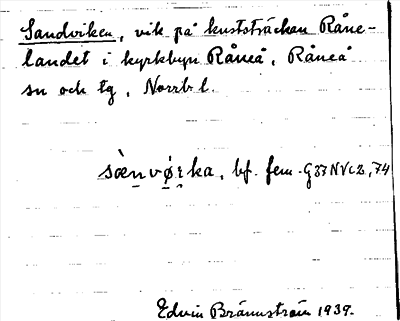 Sandviken, vik på kuststräckan Råne-
landet i kyrkbyn Råneå, Råneå
sn och tg, Norrb l.
bf. fem.
Edvin Brännström 1939.